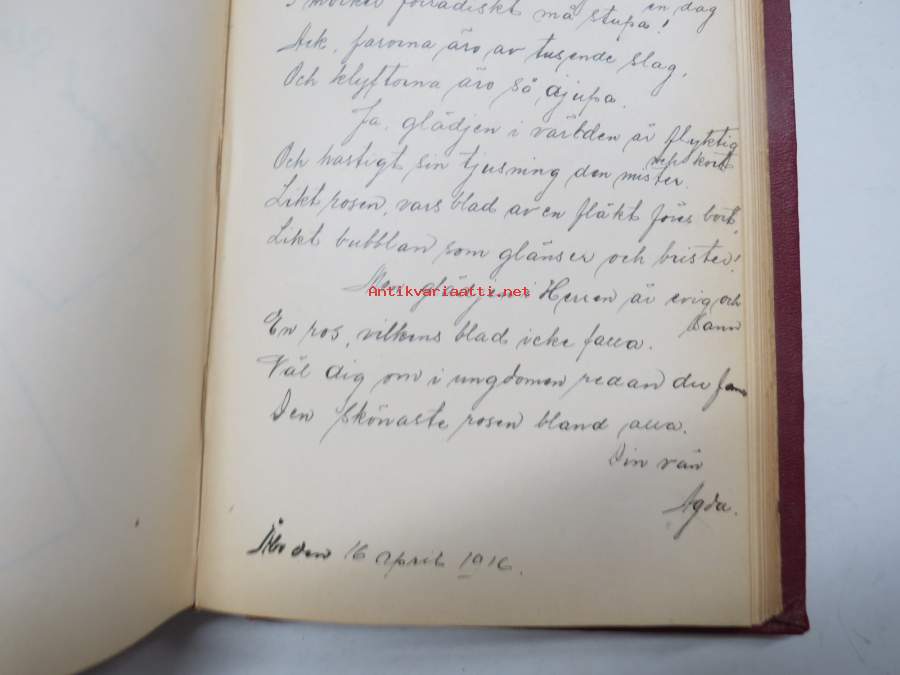 I mörker förrädiskt må stupa!
en dag
Ack, farorna äro av tusende slag,
Och klyftorna äro så djupa.
Ja, glädjen i världen är flyktig
och kort
Och hastigt sin tjusning den mister.
Likt rosen, vars blad av en fläkt föres bort,
Likt bubblan som glänser och brister!
Men glädjen i Herren är evig och
sann
Antikvariaatti.net
En ros, vilkens blad icke falla.
Väl dig om i ungdomen redan du fann
Den skönaste rosen bland alla.
Din vän
Agda.
Åbo den 16 april 1916.